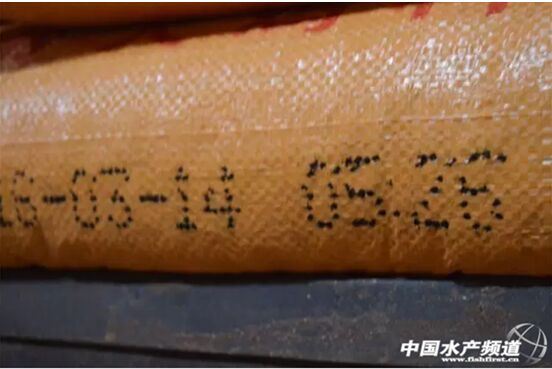 16-03-14 05:26
中国水产频道
www.fishfirst.cn